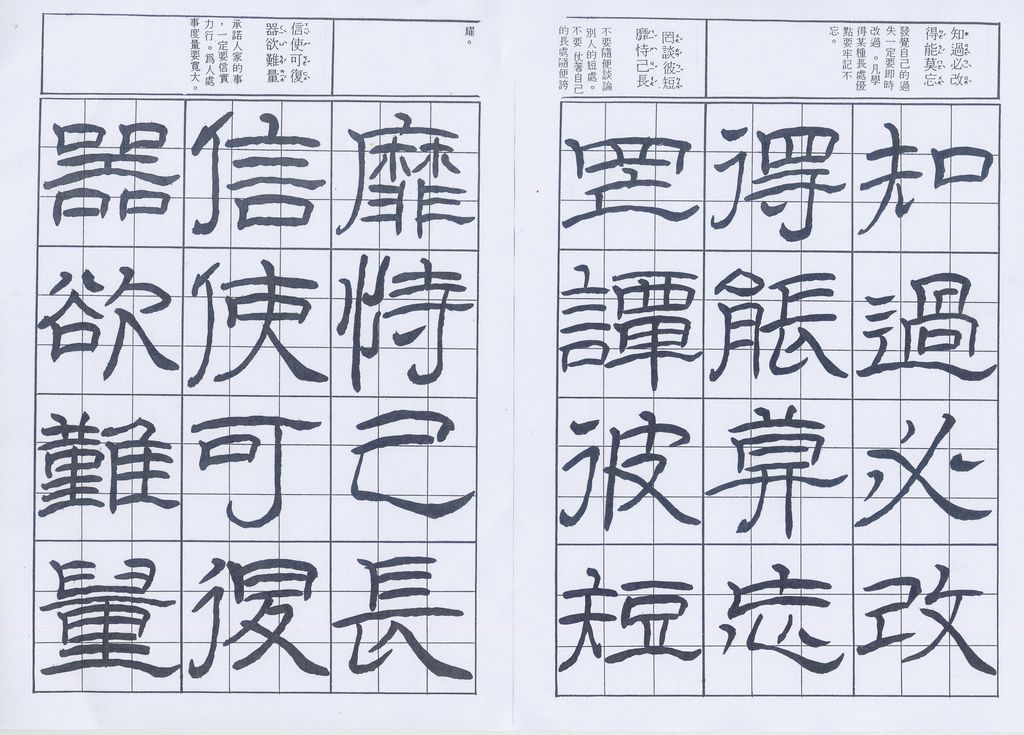 知過必改
得能莫忘
發覺自己的過
失一定要即時
改過。凡學
得某種長處優
點要牢記不
忘。
罔談彼短
靡恃己長
不要隨便談論
別人的短處。
不要仗著自己
的長處隨便誇
知過必改
得能莫忘
罔譚彼短
耀。
信使可復
器欲難量
承諾人家的事
，一定要信實
力行。爲人處
事度量要寬大。
靡恃己長
信使可復
器欲難量